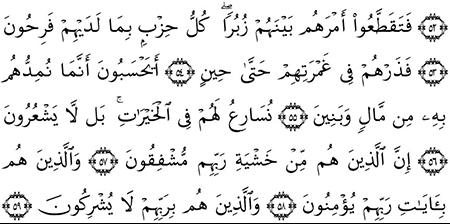 ﴿٥٢﴾ فَتَقَطَّعُوٓا۟ أَمْرَهُم بَيْنَهُمْ زُبُرًۭا ۖ كُلُّ حِزْبٍۭ بِمَا لَدَيْهِمْ فَرِحُونَ
﴿٥٣﴾ فَذَرْهُمْ فِى غَمْرَتِهِمْ حَتَّىٰ حِينٍ ﴿٥٤﴾ أَيَحْسَبُونَ أَنَّمَا نُمِدُّهُم
بِهِۦ مِن مَّالٍۢ وَبَنِينَ ﴿٥٥﴾ نُسَارِعُ لَهُمْ فِى ٱلْخَيْرَٰتِ ۚ بَل لَّا يَشْعُرُونَ
﴿٥٦﴾ إِنَّ ٱلَّذِينَ هُم مِّنْ خَشْيَةِ رَبِّهِم مُّشْفِقُونَ ﴿٥٧﴾ وَٱلَّذِينَ هُم
بِـَٔايَٰتِ رَبِّهِمْ يُؤْمِنُونَ ﴿٥٨﴾ وَٱلَّذِينَ هُم بِرَبِّهِمْ لَا يُشْرِكُونَ ﴿٥٩﴾